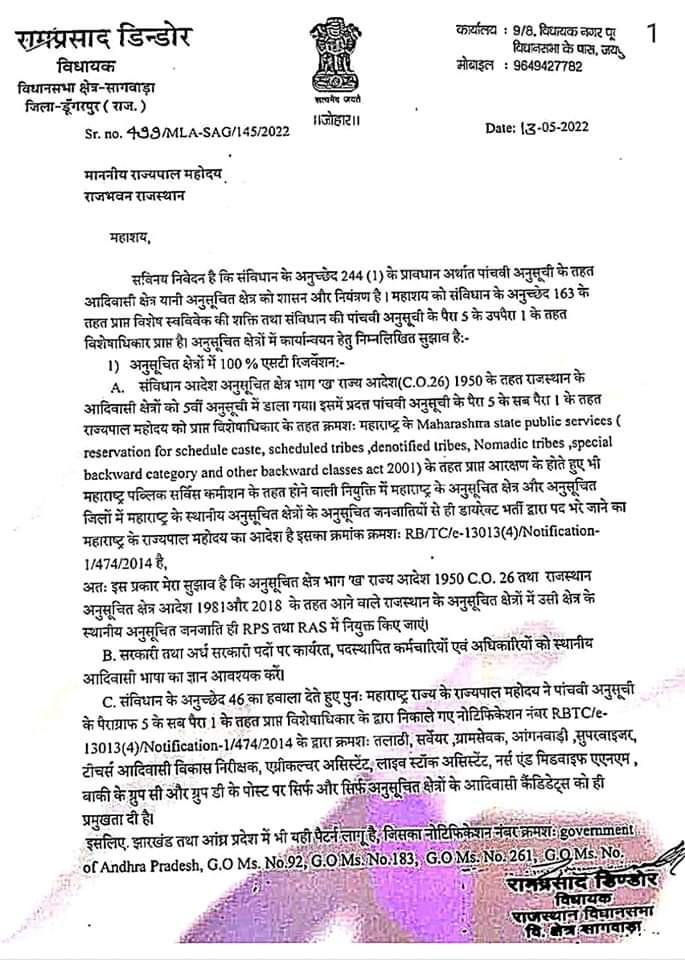 रामप्रसाद डिन्डोर
विधायक
विधानसभा क्षेत्र-सागवाड़ा
जिला-डूँगरपुर ( राज. )
सत्यमेव जयते
।।जोहार।।
कार्यालय : 9/8, विधायक नगर पू
विधानसभा के पास, जयपु
मोबाइल : 9649427782
1
Sr. no. 499/MLA-SAG/145/2022
Date: 13-05-2022
माननीय राज्यपाल महोदय
राजभवन राजस्थान
महाशय,
सविनय निवेदन है कि संविधान के अनुच्छेद 244 (1) के प्रावधान अर्थात पांचवी अनुसूची के तहत
आदिवासी क्षेत्र यानी अनुसूचित क्षेत्र को शासन और नियंत्रण है । महाशय को संविधान के अनुच्छेद 163 के
तहत प्राप्त विशेष स्वविवेक की शक्ति तथा संविधान की पांचवी अनुसूची के पैरा 5 के उपपैरा 1 के तहत
विशेषाधिकार प्राप्त है। अनुसूचित क्षेत्रों में कार्यान्वयन हेतु निम्नलिखित सुझाव है:-
1) अनुसूचित क्षेत्रों में 100 % एसटी रिजर्वेशन:-
A. संविधान आदेश अनुसूचित क्षेत्र भाग 'ख' राज्य आदेश(C.O.26) 1950 के तहत राजस्थान के
आदिवासी क्षेत्रों को 5वीं अनुसूची में डाला गया। इसमें प्रदत्त पांचवी अनुसूची के पैरा 5 के सब पैरा 1 के तहत
राज्यपाल महोदय को प्राप्त विशेषाधिकार के तहत क्रमशः महाराष्ट्र के Maharashtra state public services (
reservation for schedule caste, scheduled tribes ,denotified tribes, Nomadic tribes ,special
backward category and other backward classes act 2001) के तहत प्राप्त आरक्षण के होते हुए भी
महाराष्ट्र पब्लिक सर्विस कमीशन के तहत होने वाली नियुक्ति में महाराष्ट्र के अनुसूचित क्षेत्र और अनुसूचित
जिलों में महाराष्ट्र के स्थानीय अनुसूचित क्षेत्रों के अनुसूचित जनजातियों से ही डायरेक्ट भर्ती द्वारा पद भरे जाने का
महाराष्ट्र के राज्यपाल महोदय का आदेश है इसका क्रमांक क्रमशः RB/TC/e-13013(4)/Notification-
1/474/2014 है,
अतः इस प्रकार मेरा सुझाव है कि अनुसूचित क्षेत्र भाग 'ख' राज्य आदेश 1950 C.O. 26 तथा राजस्थान
अनुसूचित क्षेत्र आदेश 1981और 2018 के तहत आने वाले राजस्थान के अनुसूचित क्षेत्रों में उसी क्षेत्र के
स्थानीय अनुसूचित जनजाति ही RPS तथा RAS में नियुक्त किए जाएं।
B. सरकारी तथा अर्ध सरकारी पदों पर कार्यरत, पदस्थापित कर्मचारियों एवं अधिकारियों को स्थानीय
आदिवासी भाषा का ज्ञान आवश्यक करें।
C. संविधान के अनुच्छेद 46 का हवाला देते हुए पुनः महाराष्ट्र राज्य के राज्यपाल महोदय ने पांचवी अनुसूची
के पैराग्राफ 5 के सब पैरा 1 के तहत प्राप्त विशेषाधिकार के द्वारा निकाले गए नोटिफिकेशन नंबर RBTC/e-
13013(4)/Notification-1/474/2014 के द्वारा क्रमशः तलाठी, सर्वेयर ,ग्रामसेवक, आंगनवाड़ी ,सुपरवाइजर,
टीचर्स आदिवासी विकास निरीक्षक, एग्रीकल्चर असिस्टेंट, लाइव स्टॉक असिस्टेंट, नर्स एंड मिडवाइफ एएनएम ,
बाकी के ग्रुप सी और ग्रुप डी के पोस्ट पर सिर्फ और सिर्फ अनुसूचित क्षेत्रों के आदिवासी कैंडिडेट्स को ही
प्रमुखता दी है।
इसलिए. झारखंड तथा आंध्र प्रदेश में भी यही पैटर्न लागू है, जिसका नोटिफिकेशन नंबर क्रमशः government
of Andhra Pradesh, G.O Ms. No.92, G.O Ms. No.183, G.O Ms. No. 261, G.O Ms. No.
रामप्रसाद डिण्डोर
विधायक
राजस्थान विधानसभा
वि. क्षेत्र सागवाड़ा